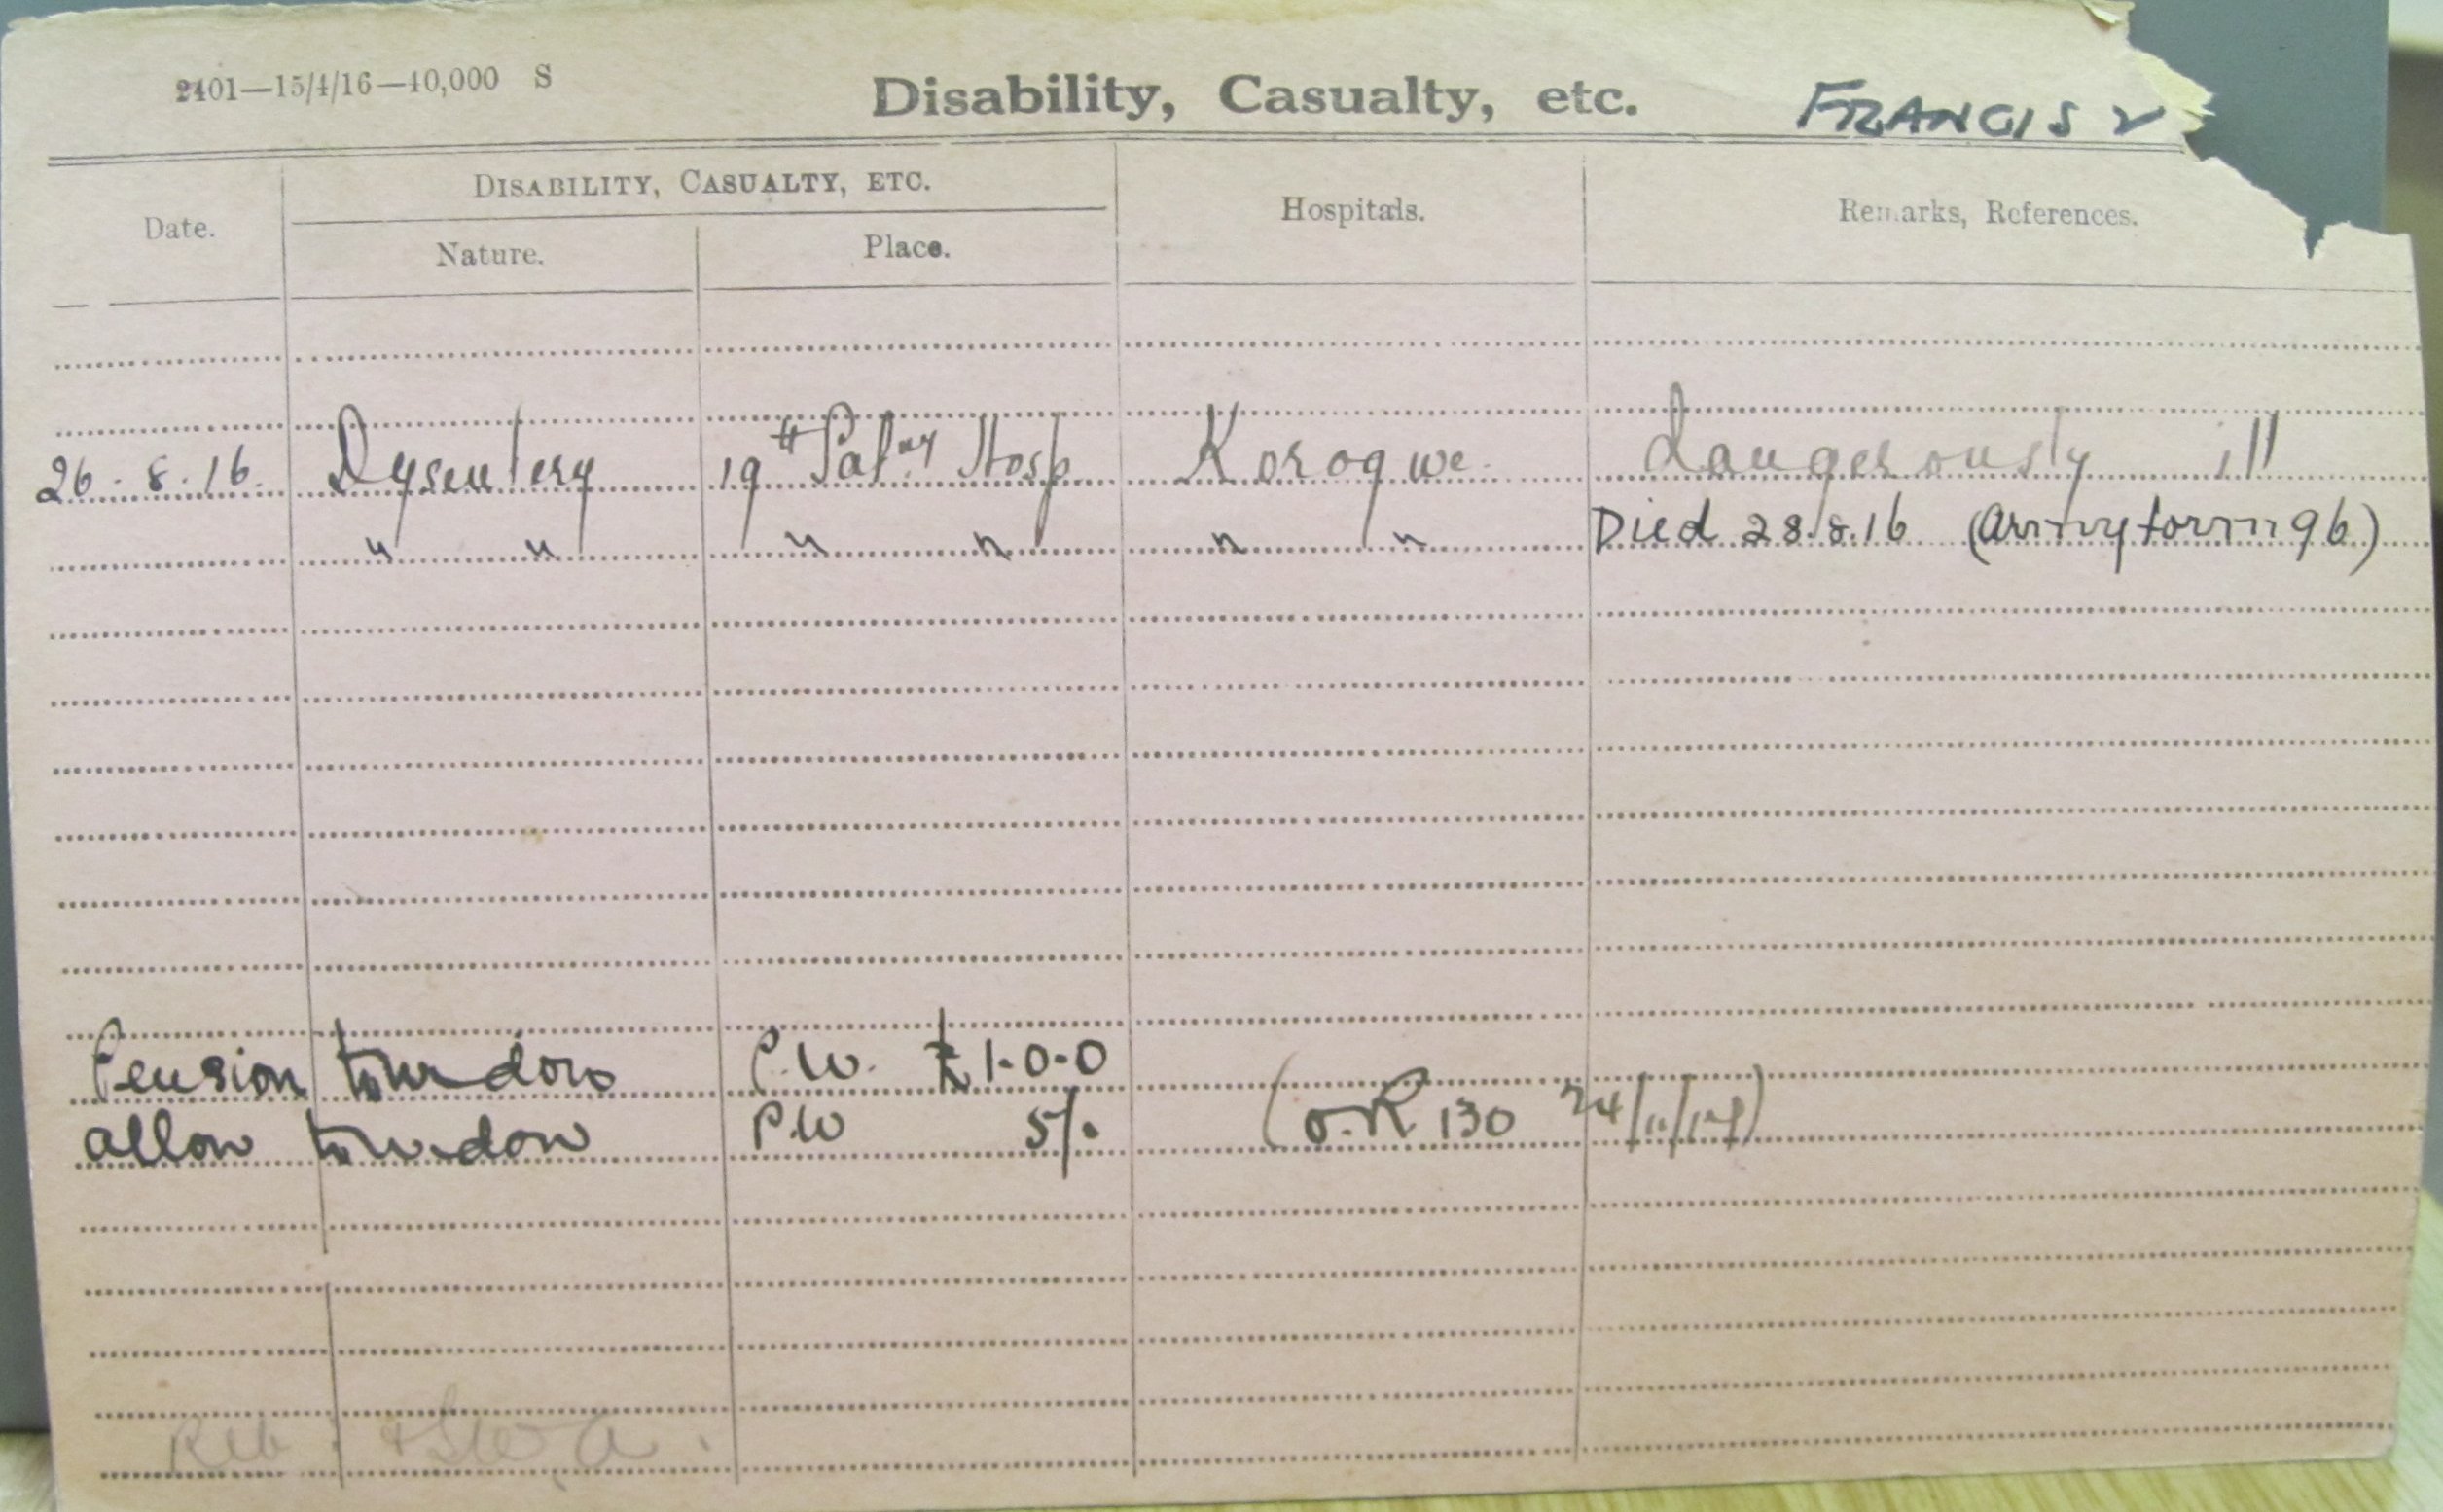 2401—15/4/16—40,000 S
Disability, Casualty, etc.
FRANCIS V
DISABILITY, CASUALTY, ETC.
Date. Nature. Place. Hospitals. Remarks, References.
26.8.16. Dysentery 19th Hosp Korogwe. Dangerously ill
" " " " " " Died 28.8.16 (Army form 96)
Pension to widow P.W. £1-0-0
allow to widow P.W 5/. (O.R 130 24/11/17)
Reb: & S.W.A.